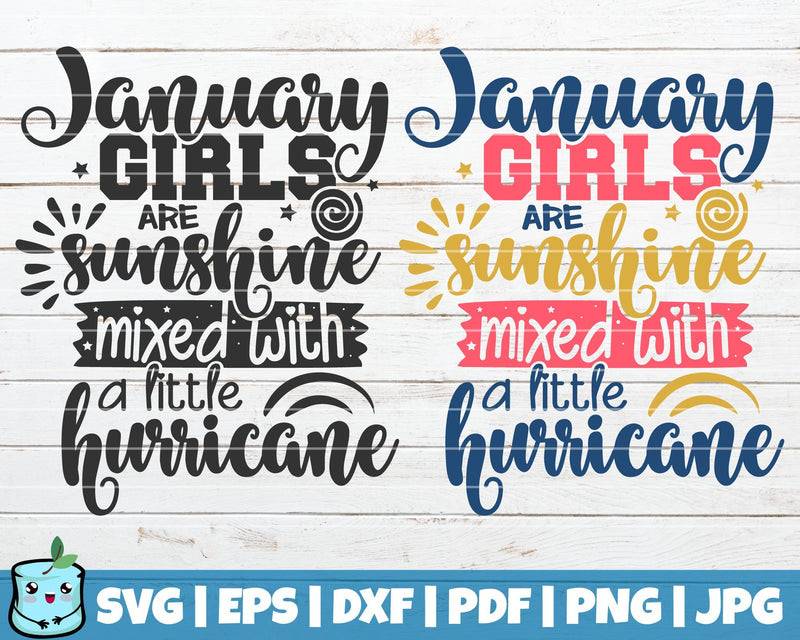 January
GIRLS
ARE
sunshine
mixed with
a little
hurricane
January
GIRLS
ARE
sunshine
mixed with
a little
hurricane
SVG | EPS | DXF | PDF | PNG | JPG